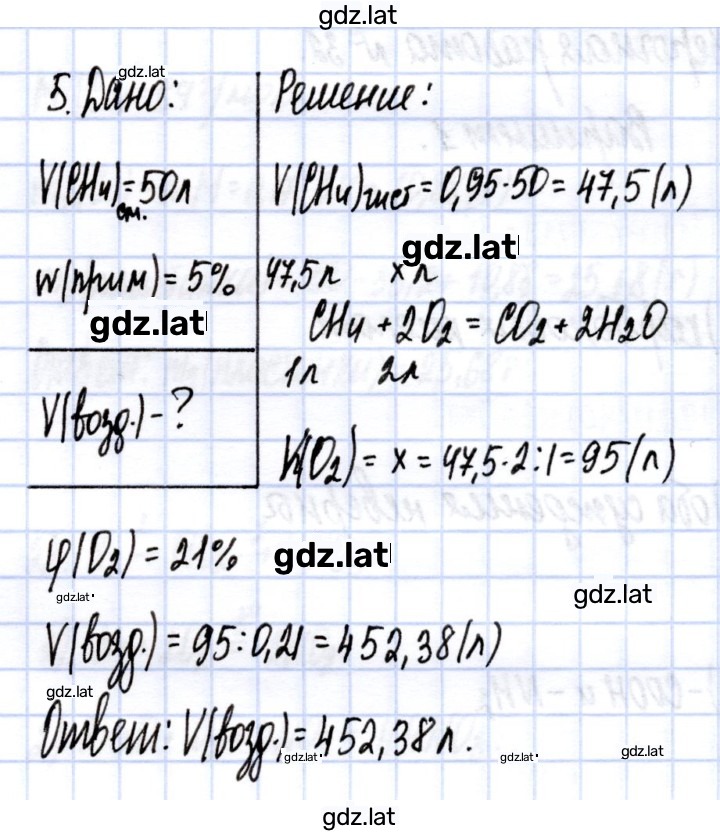 gdz.lat
5. Дано:
gdz.lat
V(CH4)см. = 50 л
w(прим) = 5%
gdz.lat
V(возд.) - ?
Решение:
V(CH4)чист = 0,95·50 = 47,5 (л)
gdz.lat
47,5 л x л
CH4 + 2O2 = CO2 + 2H2O
1л 2л
V(O2) = x = 47,5·2:1 = 95 (л)
φ(O2) = 21%
gdz.lat
gdz.lat
gdz.lat
V(возд.) = 95:0,21 = 452,38 (л)
gdz.lat
Ответ: V(возд.) = 452,38 л.
gdz.lat
gdz.lat
gdz.lat
gdz.lat